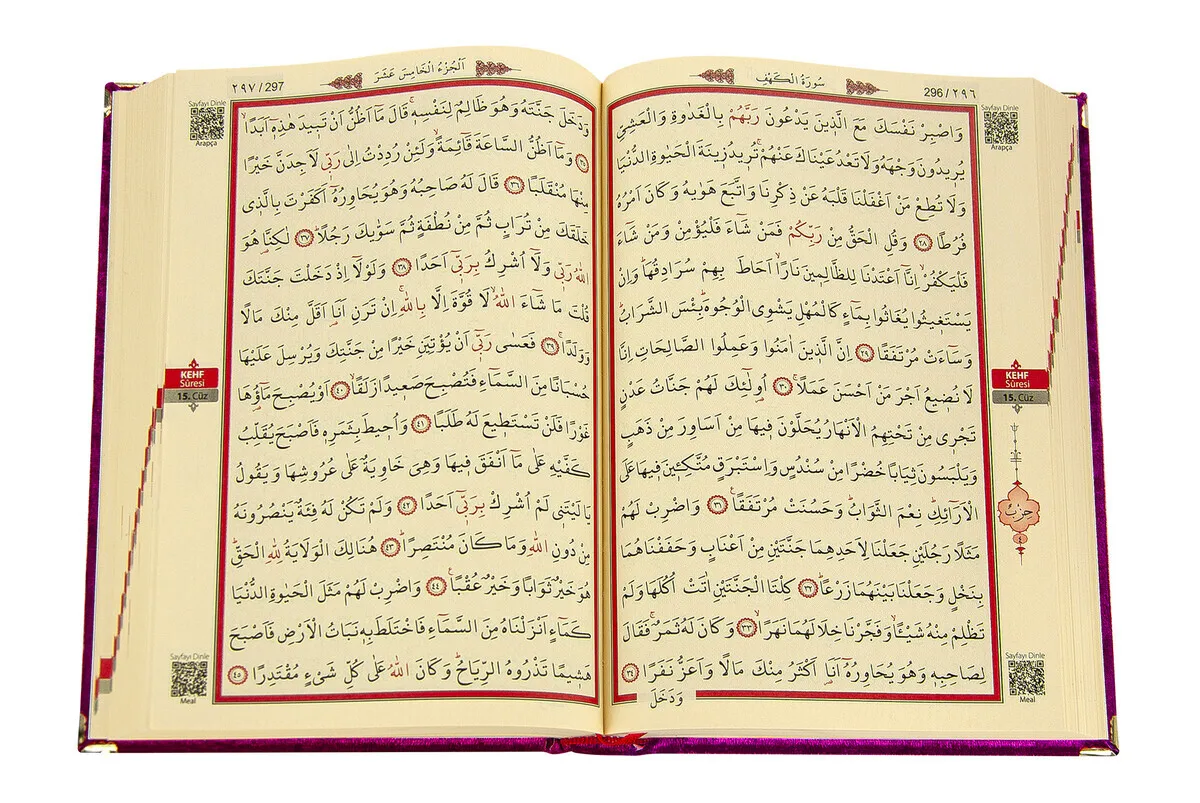 سُورَةُ الْكَهْفِ
296 / ٢٩٦
Sayfayı Dinle
Arapça
وَاصْبِرْ نَفْسَكَ مَعَ الَّذٖينَ يَدْعُونَ رَبَّهُمْ بِالْغَدٰوةِ وَالْعَشِيِّ
يُرٖيدُونَ وَجْهَهُ وَلَا تَعْدُ عَيْنَاكَ عَنْهُمْۚ تُرٖيدُ زٖينَةَ الْحَيٰوةِ الدُّنْيَا
وَلَا تُطِعْ مَنْ اَغْفَلْنَا قَلْبَهُ عَنْ ذِكْرِنَا وَاتَّبَعَ هَوٰيهُ وَكَانَ اَمْرُهُ
فُرُطًا ﴿٢٨﴾ وَقُلِ الْحَقُّ مِنْ رَبِّكُمْ فَمَنْ شَٓاءَ فَلْيُؤْمِنْ وَمَنْ شَٓاءَ
فَلْيَكْفُرْۙ اِنَّٓا اَعْتَدْنَا لِلظَّالِمٖينَ نَارًاۙ اَحَاطَ بِهِمْ سُرَادِقُهَاؕ وَاِنْ
يَسْتَغٖيثُوا يُغَاثُوا بِمَٓاءٍ كَالْمُهْلِ يَشْوِي الْوُجُوهَؕ بِئْسَ الشَّرَابُؕ
وَسَٓاءَتْ مُرْتَفَقًا ﴿٢٩﴾ اِنَّ الَّذٖينَ اٰمَنُوا وَعَمِلُوا الصَّالِحَاتِ اِنَّا
لَا نُضٖيعُ اَجْرَ مَنْ اَحْسَنَ عَمَلًاۚ ﴿٣٠﴾ اُولٰٓئِكَ لَهُمْ جَنَّاتُ عَدْنٍ
تَجْرٖي مِنْ تَحْتِهِمُ الْاَنْهَارُ يُحَلَّوْنَ فٖيهَا مِنْ اَسَاوِرَ مِنْ ذَهَبٍ
وَيَلْبَسُونَ ثِيَابًا خُضْرًا مِنْ سُنْدُسٍ وَاِسْتَبْرَقٍ مُتَّكِـٖٔينَ فٖيهَا عَلَى
الْاَرَٓائِكِؕ نِعْمَ الثَّوَابُؕ وَحَسُنَتْ مُرْتَفَقًا۟ ﴿٣١﴾ وَاضْرِبْ لَهُمْ
مَثَلًا رَجُلَيْنِ جَعَلْنَا لِاَحَدِهِمَا جَنَّتَيْنِ مِنْ اَعْنَابٍ وَحَفَفْنَاهُمَا
بِنَخْلٍ وَجَعَلْنَا بَيْنَهُمَا زَرْعًاؕ ﴿٣٢﴾ كِلْتَا الْجَنَّتَيْنِ اٰتَتْ اُكُلَهَا وَلَمْ
تَظْلِمْ مِنْهُ شَيْـًٔاۙ وَفَجَّرْنَا خِلَالَهُمَا نَهَرًاۙ ﴿٣٣﴾ وَكَانَ لَهُ ثَمَرٌۚ فَقَالَ
لِصَاحِبِهٖ وَهُوَ يُحَاوِرُهُٓ اَنَا۬ اَكْثَرُ مِنْكَ مَالًا وَاَعَزُّ نَفَرًا ﴿٣٤﴾
وَدَخَلَ
KEHF
Sûresi
15. Cüz
حِزْبٌ
٤
Sayfayı Dinle
Meal
٢٩٧ / 297
اَلْجُزْءُ الْخَامِسَ عَشَرَ
Sayfayı Dinle
Arapça
وَدَخَلَ جَنَّتَهُ وَهُوَ ظَالِمٌ لِنَفْسِهٖۚ قَالَ مَٓا اَظُنُّ اَنْ تَبٖيدَ هٰذِهٖٓ اَبَدًاۙ
﴿٣٥﴾ وَمَٓا اَظُنُّ السَّاعَةَ قَٓائِمَةً وَلَئِنْ رُدِدْتُ اِلٰى رَبّٖي لَاَجِدَنَّ خَيْرًا
مِنْهَا مُنْقَلَبًا ﴿٣٦﴾ قَالَ لَهُ صَاحِبُهُ وَهُوَ يُحَاوِرُهُٓ اَكَفَرْتَ بِالَّذٖي
خَلَقَكَ مِنْ تُرَابٍ ثُمَّ مِنْ نُطْفَةٍ ثُمَّ سَوّٰيكَ رَجُلًاؕ ﴿٣٧﴾ لٰكِنَّا۬ هُوَ
اللّٰهُ رَبّٖي وَلَٓا اُشْرِكُ بِرَبّٖٓي اَحَدًا ﴿٣٨﴾ وَلَوْلَٓا اِذْ دَخَلْتَ جَنَّتَكَ
قُلْتَ مَا شَٓاءَ اللّٰهُۙ لَا قُوَّةَ اِلَّا بِاللّٰهِۚ اِنْ تَرَنِ اَنَا۬ اَقَلَّ مِنْكَ مَالًا
وَوَلَدًاۚ ﴿٣٩﴾ فَعَسٰى رَبّٖٓي اَنْ يُؤْتِيَنِ خَيْرًا مِنْ جَنَّتِكَ وَيُرْسِلَ عَلَيْهَا
حُسْبَانًا مِنَ السَّمَٓاءِ فَتُصْبِحَ صَعٖيدًا زَلَقًاۙ ﴿٤٠﴾ اَوْ يُصْبِحَ مَٓاؤُ۬هَا
غَوْرًا فَلَنْ تَسْتَطٖيعَ لَهُ طَلَبًا ﴿٤١﴾ وَاُحٖيطَ بِثَمَرِهٖ فَاَصْبَحَ يُقَلِّبُ
كَفَّيْهِ عَلٰى مَٓا اَنْفَقَ فٖيهَا وَهِيَ خَاوِيَةٌ عَلٰى عُرُوشِهَا وَيَقُولُ
يَا لَيْتَنٖي لَمْ اُشْرِكْ بِرَبّٖٓي اَحَدًا ﴿٤٢﴾ وَلَمْ تَكُنْ لَهُ فِئَةٌ يَنْصُرُونَهُ
مِنْ دُونِ اللّٰهِ وَمَا كَانَ مُنْتَصِرًاؕ ﴿٤٣﴾ هُنَالِكَ الْوَلَايَةُ لِلّٰهِ الْحَقِّؕ
هُوَ خَيْرٌ ثَوَابًا وَخَيْرٌ عُقْبًا۟ ﴿٤٤﴾ وَاضْرِبْ لَهُمْ مَثَلَ الْحَيٰوةِ الدُّنْيَا
كَمَٓاءٍ اَنْزَلْنَاهُ مِنَ السَّمَٓاءِ فَاخْتَلَطَ بِهٖ نَبَاتُ الْاَرْضِ فَاَصْبَحَ
هَشٖيمًا تَذْرُوهُ الرِّيَاحُؕ وَكَانَ اللّٰهُ عَلٰى كُلِّ شَيْءٍ مُقْتَدِرًا ﴿٤٥﴾
KEHF
Sûresi
15. Cüz
Sayfayı Dinle
Meal